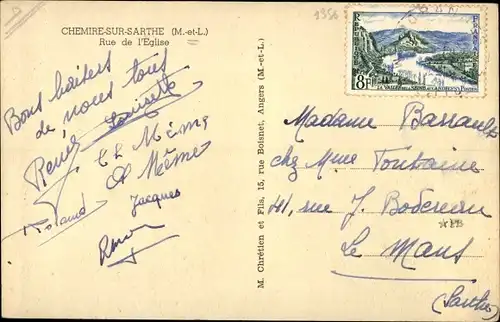 CHEMIRE-SUR-SARTHE (M.-et-L.)
Rue de l'Église
Bons baisers
de nous tous
Renée Louisette
Ch Mémé
Mémé
Roland
Jacques
M. Chrétien et Fils, 15, rue Boisnet, Angers (M.-et-L.)
8F
LA VALLÉE DE LA SEINE AUX ANDELYS POSTES
Madame Barrault
chez Mme Fontaine
41, rue J. Bodereau
Le Mans
(Sarthe)